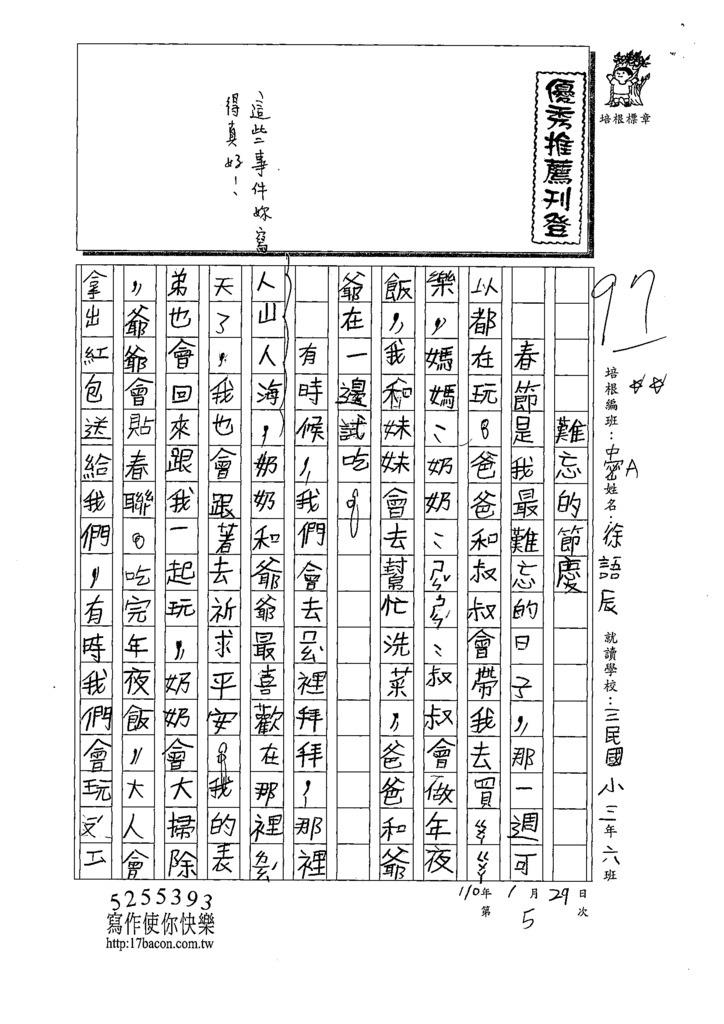 培根標章
優秀推薦刊登
這些事件妳寫
得真好！
97
培根編班：中密A 姓名：徐語辰 就讀學校：三民國小三年六班
110年1月29日
第5次
難忘的節慶
春節是我最難忘的日子，那一週可
以都在玩。爸爸和叔叔會帶我去買ㄌㄌ
樂，媽媽、奶奶、ㄕㄣˇㄕㄣˇ、叔叔會做年夜
飯，我和妹妹會去幫忙洗菜，爸爸和爺
爺在一邊試吃。
有時候，我們會去ㄇ一ㄠˋ裡拜拜，那裡
人山人海，奶奶和爺爺最喜歡在那裡ㄌ一ㄠˊ
天了，我也會跟著去祈求平安。我的表
弟也會回來跟我一起玩，奶奶會大掃除
，爺爺會貼春聯。吃完年夜飯，大人會
拿出紅包送給我們，有時我們會玩
5255393
寫作使你快樂
http:17bacon.com.tw